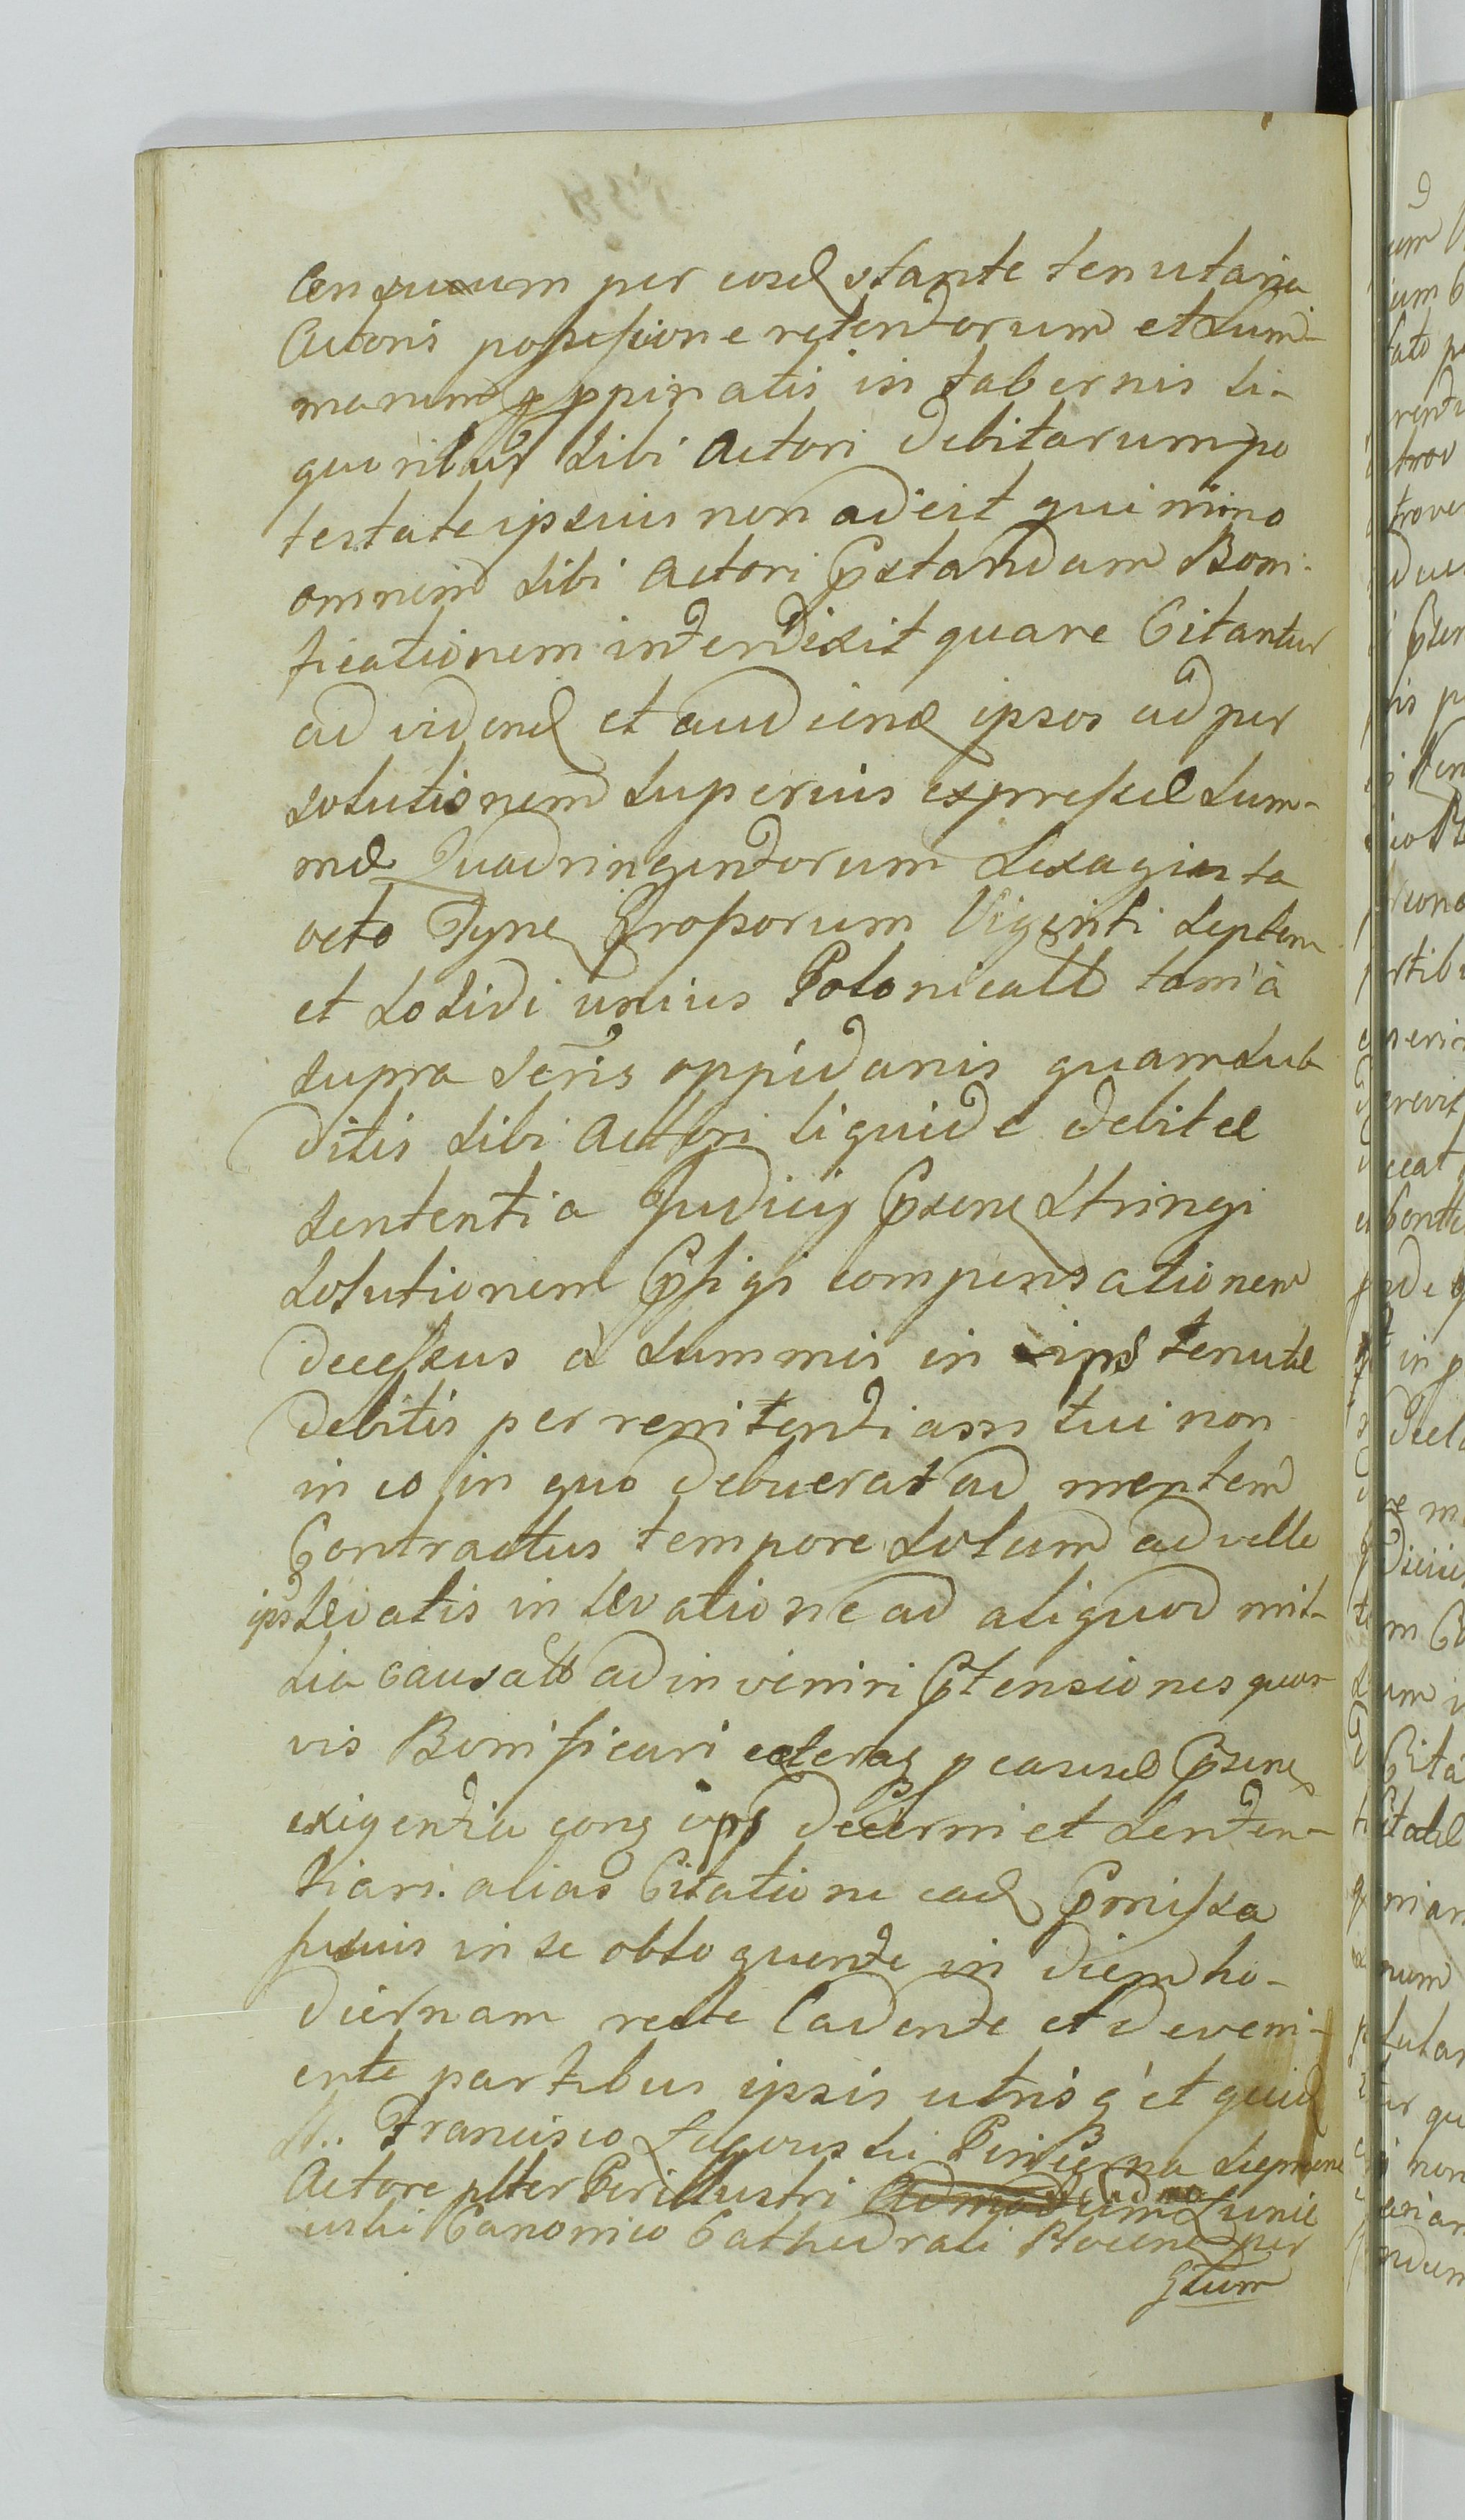 Censuum per eosd stante tenutaria
Actoris possessione retentorum et Sum-
marum p ppinatis in tabernis li-
quoribus Sibi Actori debitarum po
testate ipsius non adeit qui nimo
omnem Sibi Actori Pstandam Boni-
ficationem interdixit quare Citantur
ad vidend et audiend ipsos ad per
solutionem Superius expressæ Sum-
mæ Quadringentorum Sexaginta
octo Tynf Grossorum Viginti Septem
et Solidi unius Polonicall tam à
supra Scris oppidanis quam Sub
ditis Sibi Actori liquide debitæ
Sententia Judicij Psene Stringi
Solutionem Pfigi compensationem
decessus à Summis in ips tenutæ
debitis per renitentiam tui non
in eo in quo debuerat ad mentem
Contractus tempore Solum ad velle
ips levatis in levatione ad aliquod mil-
lia causall adinveniri Ptensiones quas-
vis Bonificari ceteraq p causæ Psens
exigentia cons ips decerni et Senten-
tiari. alias Citatione ead Pmissa
fusius in se obloquente in diem ho-
diernam recte Cadente et deveni-
ente partibus ipsis utrisq et quid
M. Francisco Pincerna
Actore plter Perillustri Admodum
Canonico Cathedrali Plocens per
Gtum